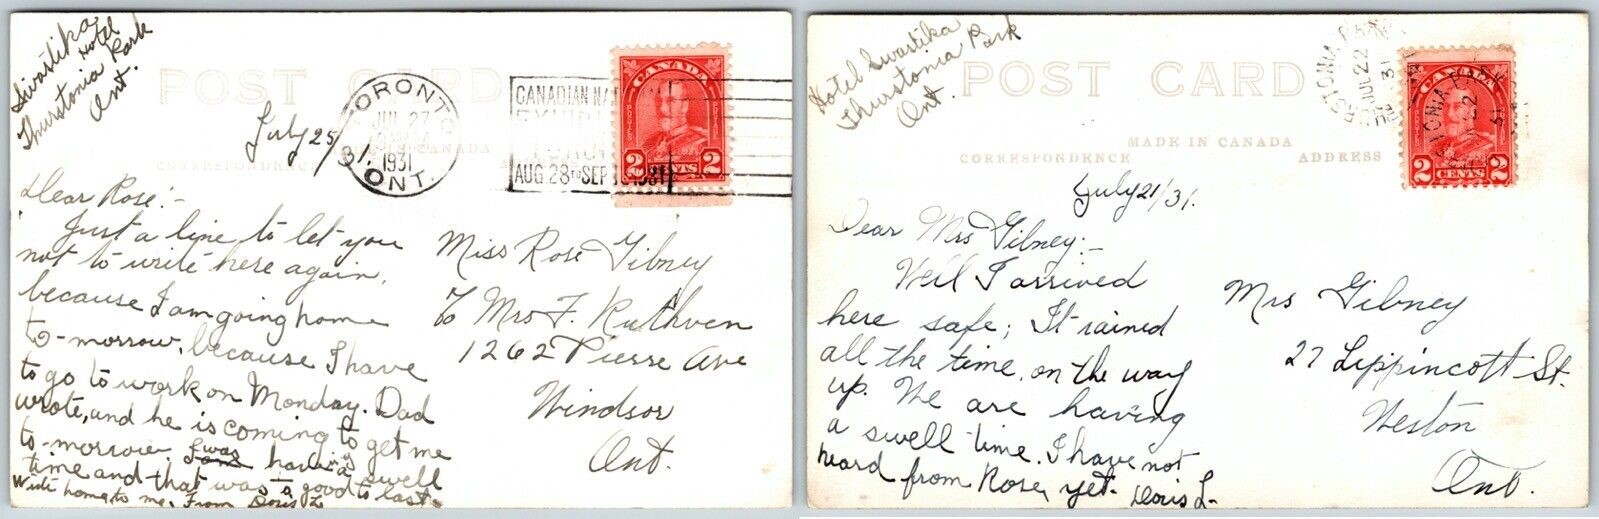 Swastika
Hotel
Thurstonia Park
Ont.
POST CARD
CANADA
2 2
CENTS
TORONTO
JUL 27
1931
ONT.
CANADIAN NA
AUG. 28 TO SEP
1931
MADE IN CANADA
CORRESPONDENCE
July 25/31.
Dear Rose:-
Just a line to let you
not to write here again,
because I am going home
to-morrow, because I have
to go to work on Monday. Dad
wrote, and he is coming to get me
to-morrow. I was having a swell
time and that was to good to last.
Write home to me. From Doris L
Miss Rose Gibney
% Mrs F. Ruthven
1262 Pierre Ave
Windsor
Ont.
Hotel Swastika
Thurstonia Park
Ont.
POST CARD
MADE IN CANADA
CORRESPONDENCE ADDRESS
CANADA
2 2
CENTS
JUL 22
31
July 21/31.
Dear Mrs Gibney:-
Well I arrived
here safe; It rained
all the time, on the way
up. We are having
a swell time. I have not
heard from Rose, yet. Doris L-
Mrs Gibney
27 Lippincott St.
Weston
Ont.